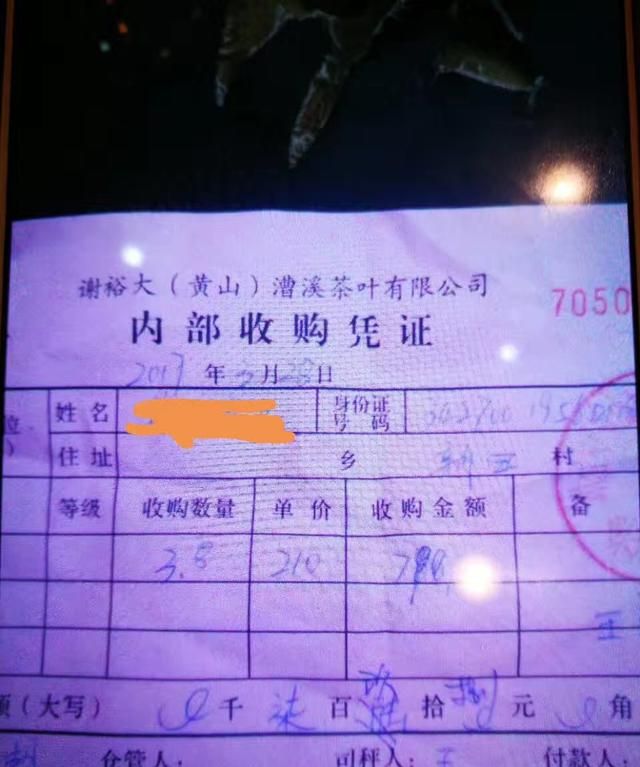 谢裕大（黄山）漕溪茶叶有限公司
7050
内部收购凭证
2017年3月28日
姓名 身份证号码
住址 乡 村
等级 收购数量 单价 收购金额 备
3.8 210
王
额（大写） 千 柒 百 拾 捌 元 角
仓管人： 司秤人： 王 付款人：